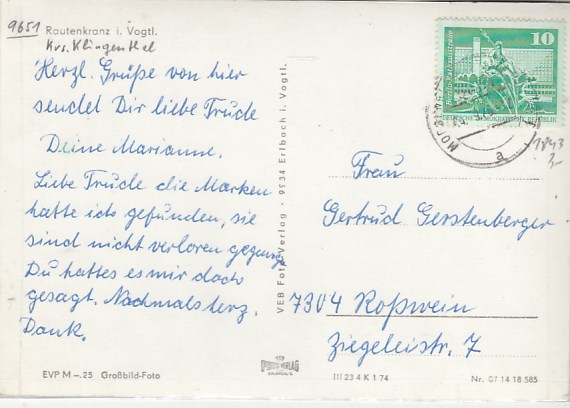 9651
Rautenkranz i. Vogtl.
Krs. Klingenthal
Herzl. Grüße von hier
sendet Dir liebe Trude
Deine Marianne.
Liebe Trude die Marken
hatte ich gefunden, sie
sind nicht verloren gegang
Du hattes es mir doch
gesagt. Nochmals herz.
Dank.
EVP M –.25 Großbild-Foto
VEB Foto-Verlag · 9934 Erlbach i. Vogtl.
10
DEUTSCHE DEMOKRATISCHE REPUBLIK
a
1843
3,-
Frau
Gertrud Gerstenberger
7304 Roßwein
Ziegeleistr. 7
III 23 4 K 1 74
Nr. 07 14 18 585